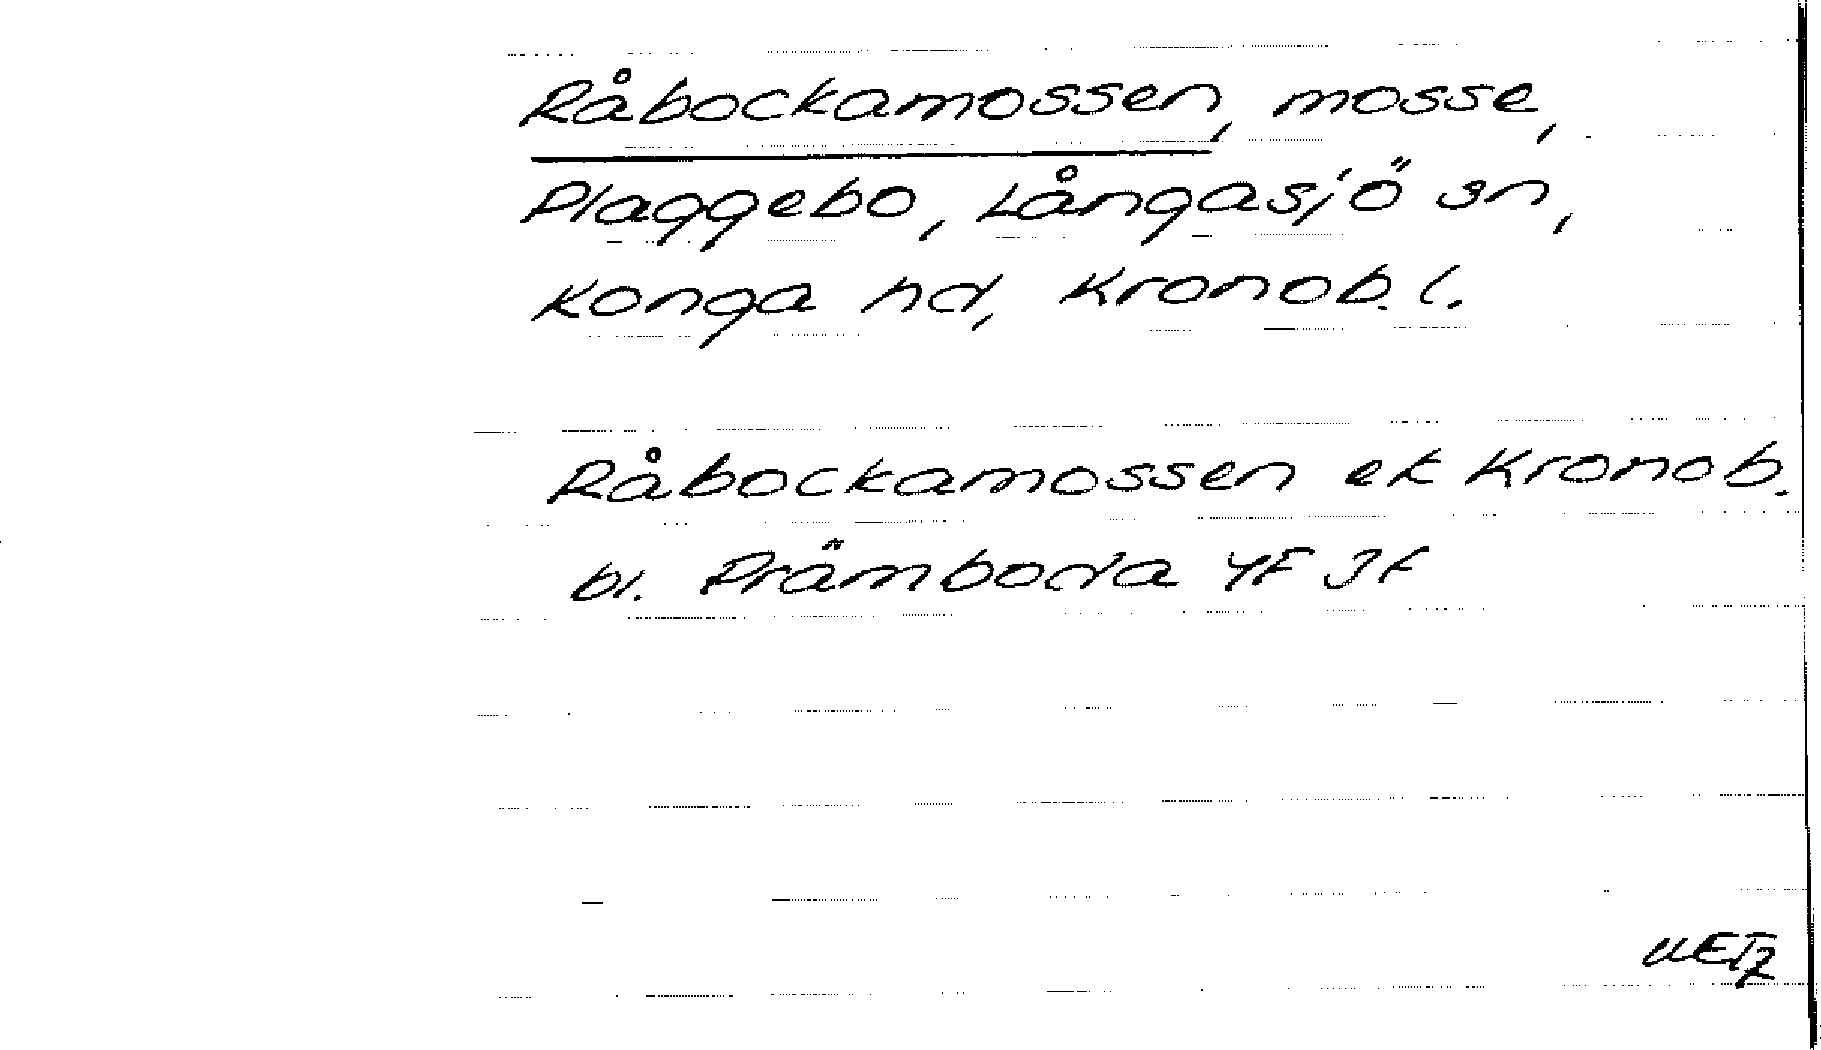 Råbockamossen, mosse,
Plaggebo, Långasjö sn,
Konga hd, Kronob. l.
Råbockamossen ek Kronob.
bl. Främboda 4F 3f